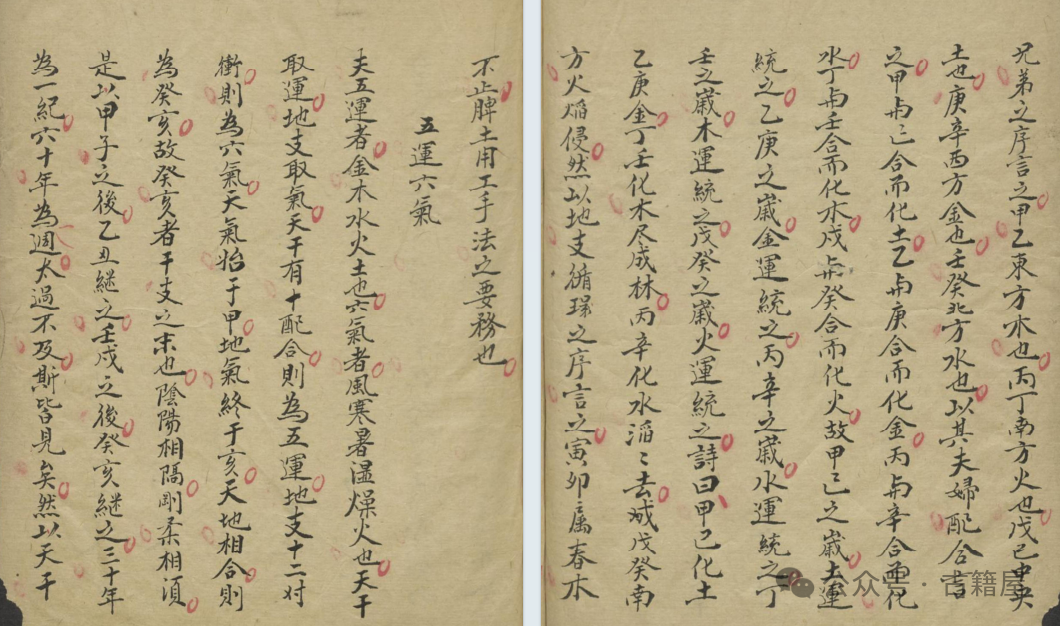 不止脾土用工手法之要務也
五運六氣
夫五運者金木水火土也六氣者風寒暑温燥火也天干
取運地支取氣天干有十配合則為五運地支十二对
衝則為六氣天氣始于甲地氣終于亥天地相合則
為癸亥故癸亥者干支之末也陰陽相隔剛柔相須
是以甲子之後乙丑継之壬戌之後癸亥継之三十年
為一紀六十年為週太過不及斯皆見矣然以天干
兄弟之序言之甲乙東方木也丙丁南方火也戊己中央
土也庚辛西方金也壬癸北方水也以其夫婦配合言
之甲与己合而化土乙与庚合而化金丙与辛合而化
水丁与壬合而化木戊与癸合而化火故甲己之歲土運
統之乙庚之歲金運統之丙辛之歲水運統之丁
壬之歲木運統之戊癸之歲火運統之詩曰甲己化土
乙庚金丁壬化木尽成林丙辛化水滔〻去減戊癸南
方火焰侵然以地支循環之序言之寅卯属春木
公众号·古籍屋